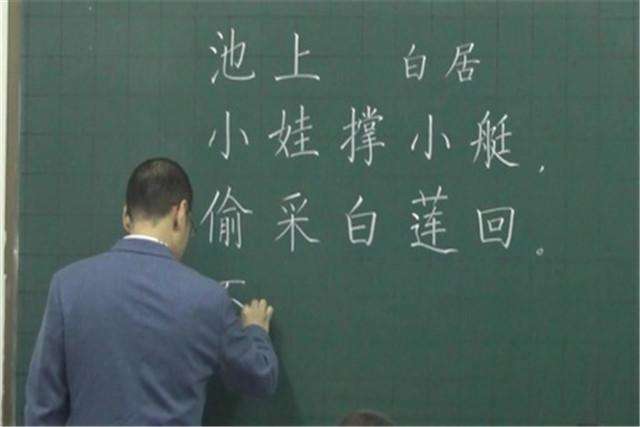 池上 白居
小娃撑小艇，
偷采白莲回。